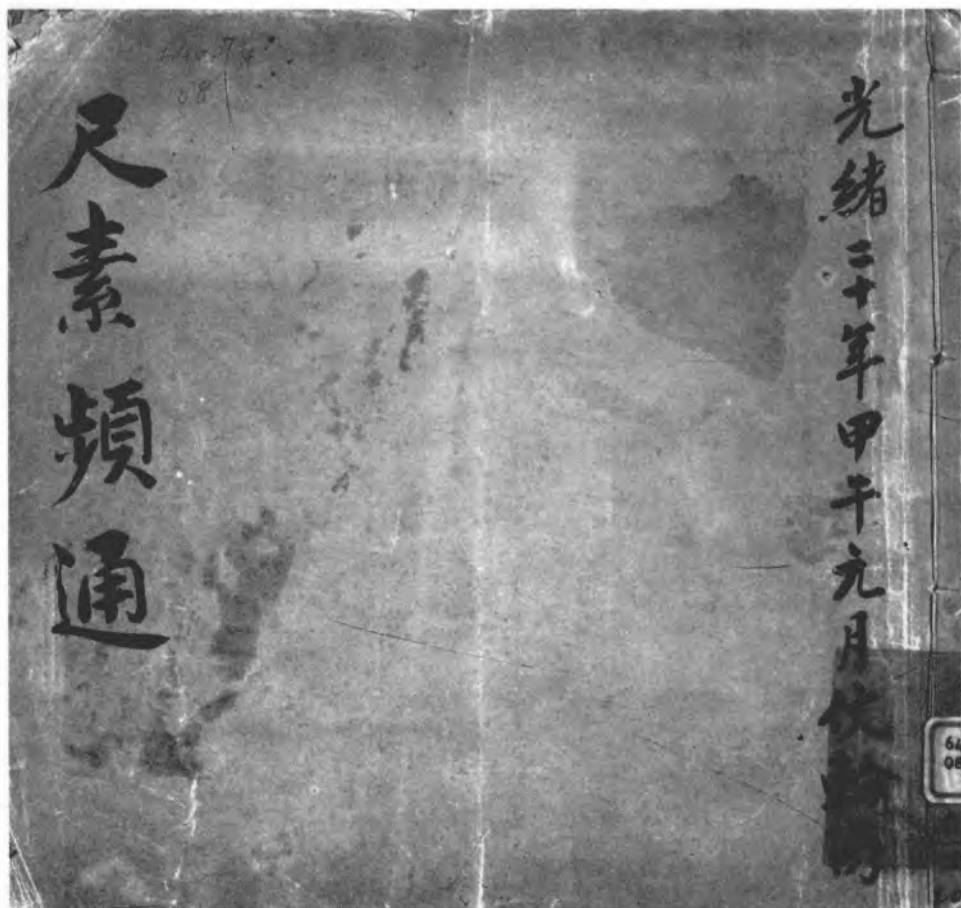 光緒二十年甲午元月
尺素頻通
08